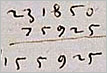 231850
75925
155925